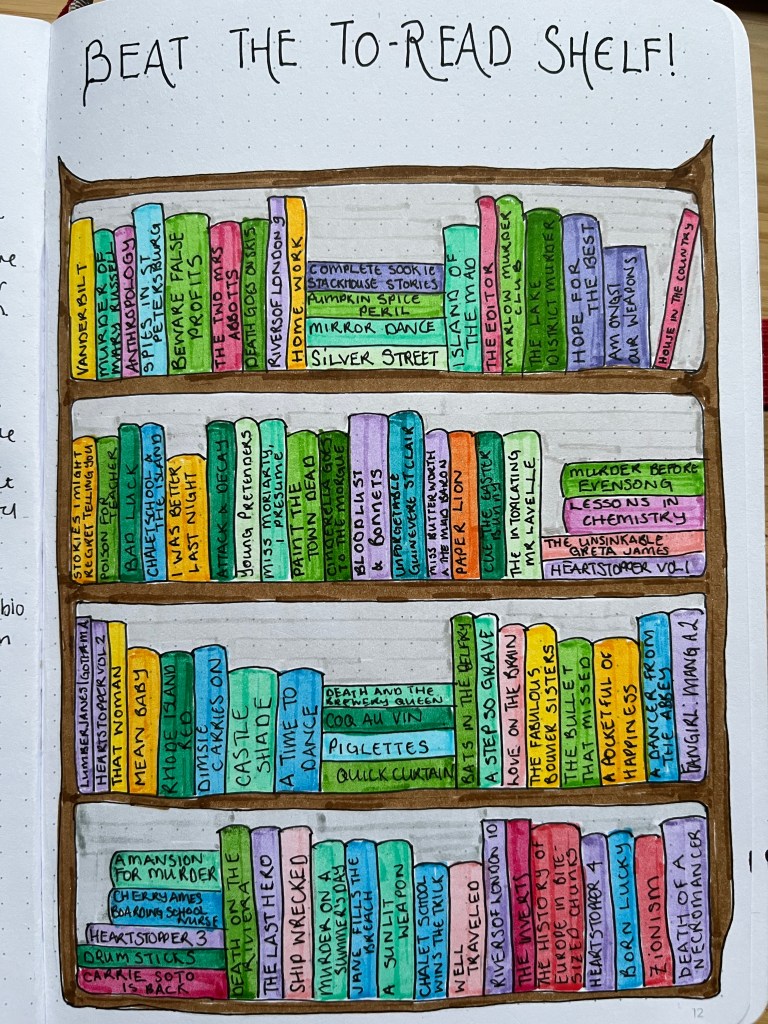 BEAT THE TO-READ SHELF!
VANDERBILT
MURDER OF
MARY RUSSELL
ANTHROPOLOGY
SPIES IN ST
PETERSBURG
BEWARE FALSE
PROFITS
THE TWO MRS
ABBOTTS
DEATH GOES ON SKIS
RIVERS OF LONDON 9
HOME WORK
COMPLETE SOOKIE
STACKHOUSE STORIES
PUMPKIN SPICE
PERIL
MIRROR DANCE
SILVER STREET
ISLAND OF
THE MAD
THE EDITOR
MARLOW MURDER
CLUB
THE LAKE
DISTRICT MURDER
HOPE FOR
THE BEST
AMONGST
OUR WEAPONS
HOUSE IN THE COUNTRY
STORIES I MIGHT
REGRET TELLING YOU
POISON FOR
TEACHER
BAD LUCK
CHALET SCHOOL &
THE ISLAND
I WAS BETTER
LAST NIGHT
ATTACK & DECAY
YOUNG PRETENDERS
MISS MORIARTY,
I PRESUME,
PAINT THE
TOWN DEAD
CINDERELLA GOES
TO THE MORGUE
BLOODLUST
& BONNETS
UNFORGETTABLE
GUINEVERE ST CLAIR
MISS BUTTERWORTH
& THE MAD BARON
PAPER LION
THE EASTER
BUNNY
THE INTOXICATING
MR LAVELLE
MURDER BEFORE
EVENSONG
LESSONS IN
CHEMISTRY
THE UNSINKABLE
GRETA JAMES
HEARTSTOPPER VOL 1
LUMBERJANES/GOTHAM A
HEARTSTOPPER VOL 2
THAT WOMAN
MEAN BABY
RHODE ISLAND
RED
DIMSIE
CARRIES ON
CASTLE
SHADE
A TIME TO
DANCE
DEATH AND THE
BREWERY QUEEN
COQ AU VIN
PIGLETTES
QUICK CURTAIN
BATS IN THE BELFRY
A STEP SO GRAVE
LOVE ON THE BRAIN
THE FABULOUS
BOUVIER SISTERS
THE BULLET
THAT MISSED
A POCKETFUL OF
HAPPINESS
A DANCER FROM
THE ABBEY
FANGIRL: MANGA 2
A MANSION
FOR MURDER
CHERRY AMES
BOARDING SCHOOL
NURSE
HEARTSTOPPER 3
DRUMSTICKS
CARRIE SOTO
IS BACK
DEATH ON THE
RIVIERA
THE LAST HERO
SHIP WRECKED
MURDER ON A
SUMMERS DAY
JANE FILLS THE
BREACH
A SUNLIT
WEAPON
CHALET SCHOOL
WINS THE TRICK
WELL
TRAVELED
RIVERS OF LONDON 10
THE INVERTS
THE HISTORY OF
EUROPE IN BITE-
SIZED CHUNKS
HEARTSTOPPER 4
BORN LUCKY
ZIONISM
DEATH OF A
NECROMANCER
12